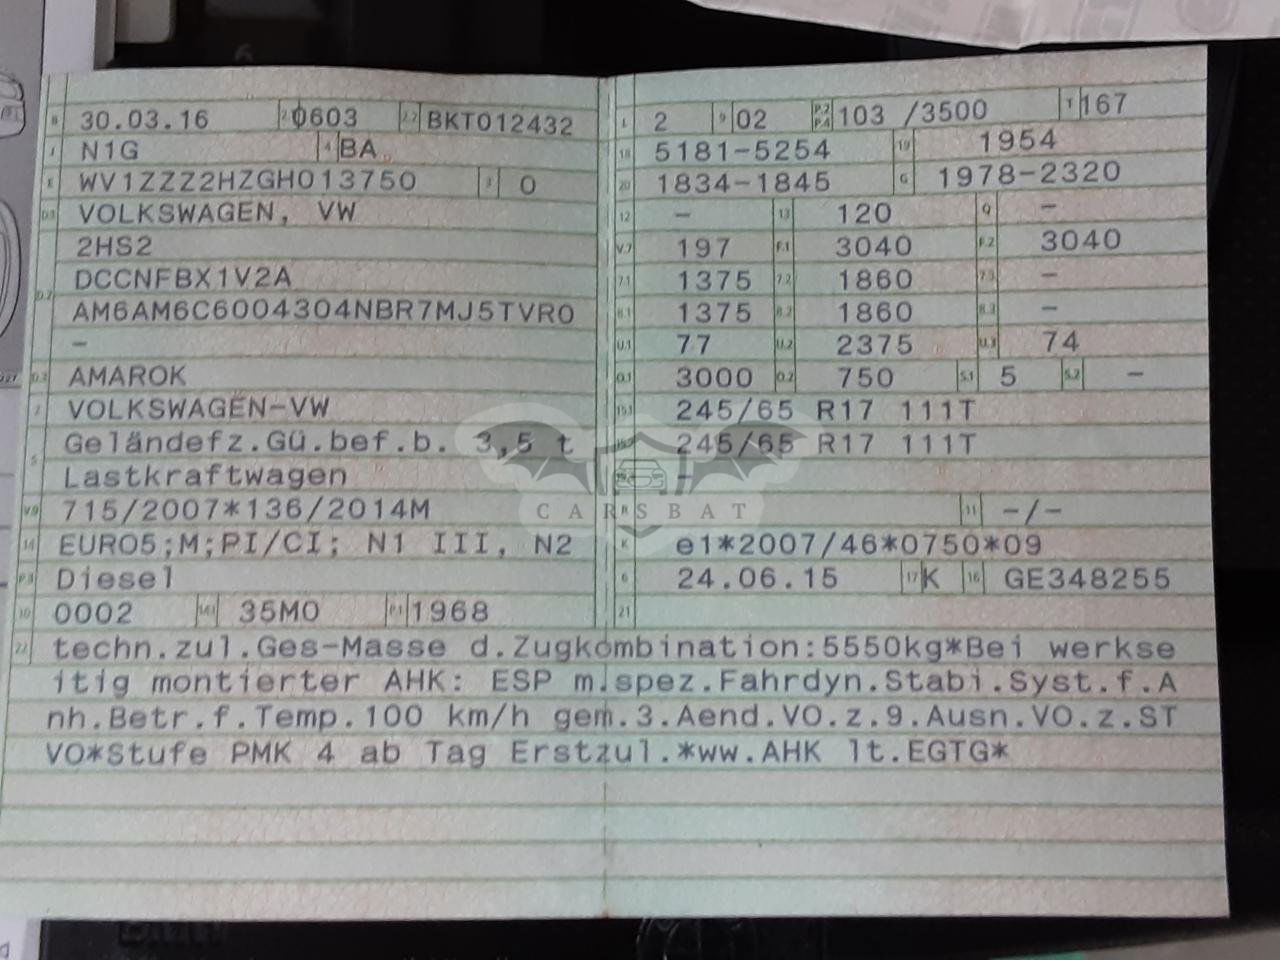 B 30.03.16 2.1 0603 2.2 BKT012432
J N1G 4 BA
E WV1ZZZ2HZGH013750 3 0
D.1 VOLKSWAGEN, VW
2HS2
D.2 DCCNFBX1V2A
AM6AM6C6004304NBR7MJ5TVR0
-
D.3 AMAROK
2 VOLKSWAGEN-VW
5 Geländefz.Gü.bef.b. 3,5 t
Lastkraftwagen
V.9 715/2007*136/2014M
14 EURO5;M;PI/CI; N1 III, N2
P.3 Diesel
10 0002 14.1 35M0 P.1 1968
L 2 9 02 P.2 P.4 103 /3500 T 167
18 5181-5254 19 1954
20 1834-1845 G 1978-2320
12 - 13 120 Q -
V.7 197 F.1 3040 F.2 3040
7.1 1375 7.2 1860 7.3 -
8.1 1375 8.2 1860 8.3 -
U.1 77 U.2 2375 U.3 74
O.1 3000 O.2 750 S.1 5 S.2 -
15.1 245/65 R17 111T
15.2 245/65 R17 111T
-
R 11 -/-
K e1*2007/46*0750*09
6 24.06.15 17 K 16 GE348255
21
22 techn.zul.Ges-Masse d.Zugkombination:5550kg*Bei werkse
itig montierter AHK: ESP m.spez.Fahrdyn.Stabi.Syst.f.A
nh.Betr.f.Temp.100 km/h gem.3.Aend.VO.z.9.Ausn.VO.z.ST
VO*Stufe PMK 4 ab Tag Erstzul.*ww.AHK lt.EGTG*
CARSBAT